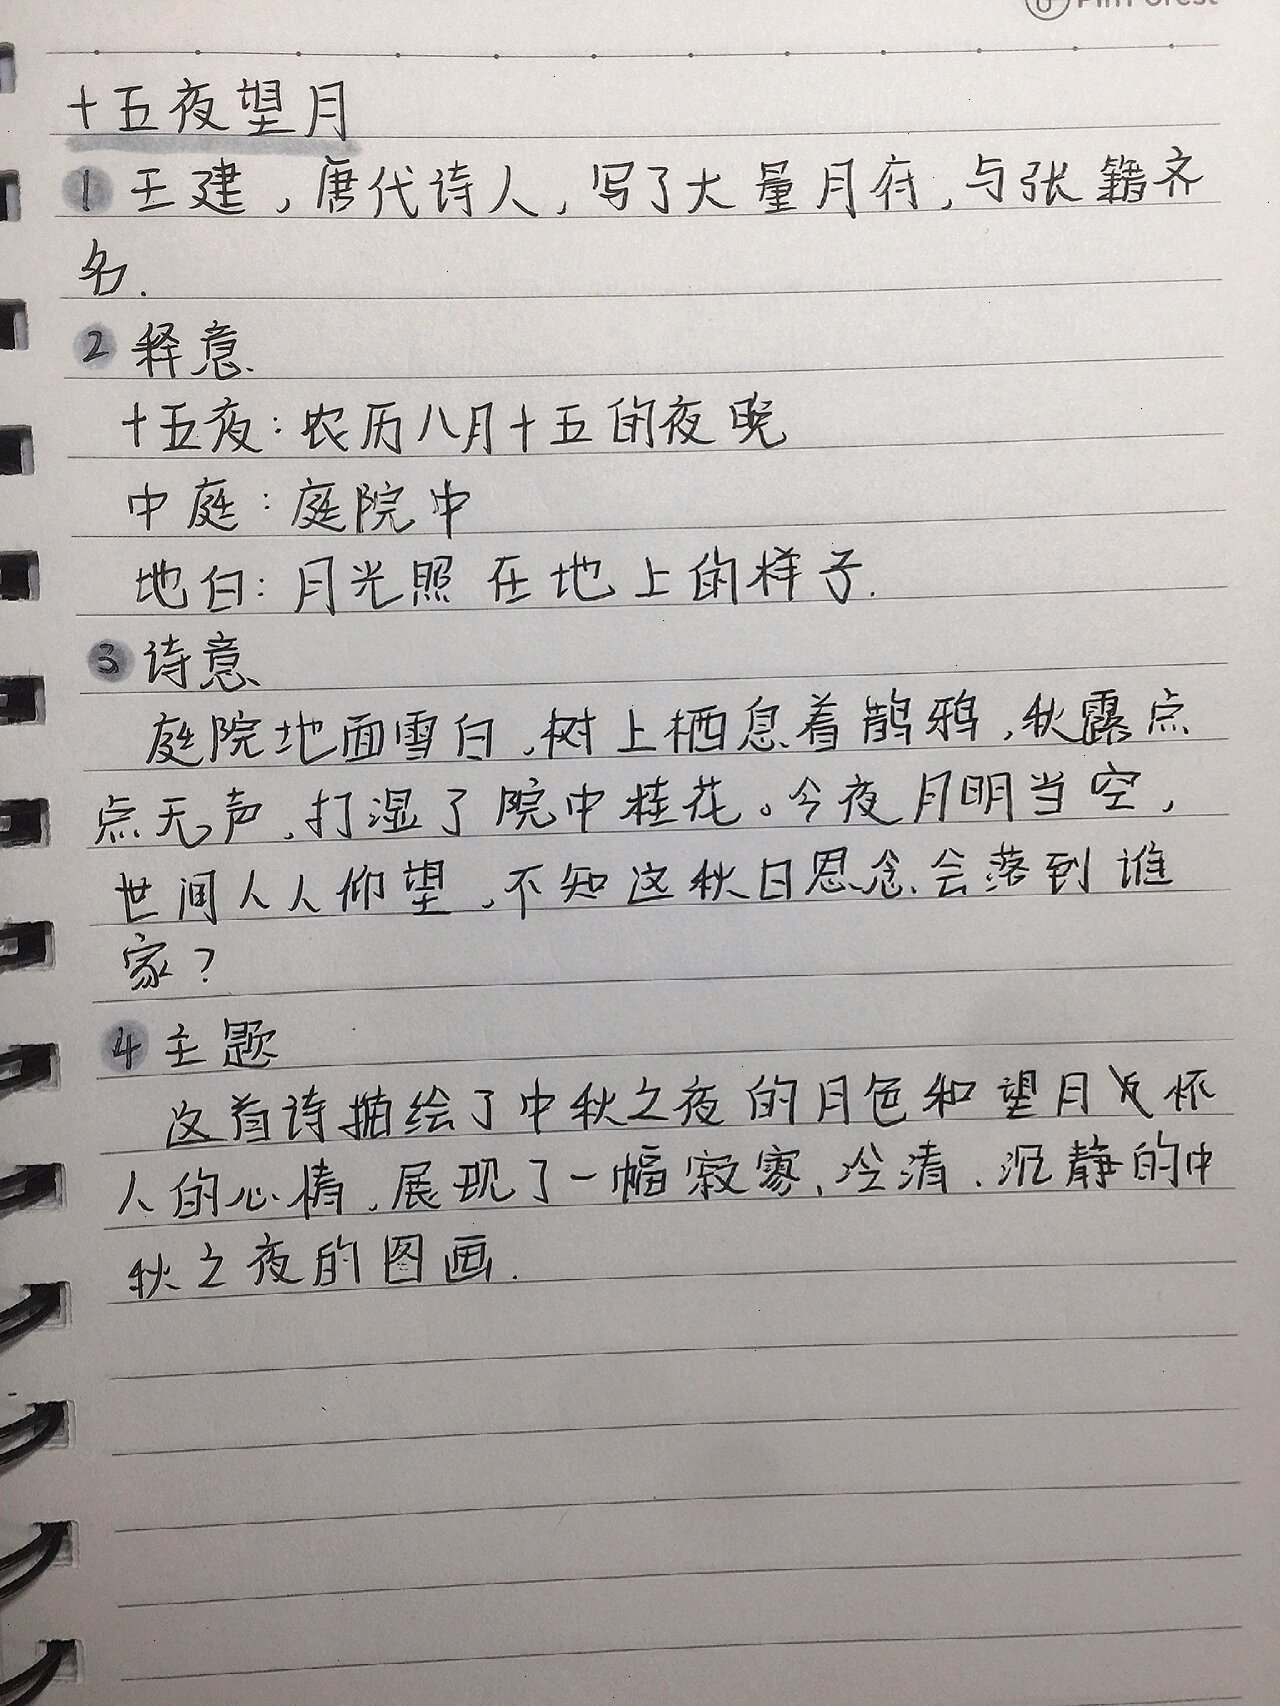 十五夜望月
1 王建，唐代诗人，写了大量月府，与张籍齐
名.
2 释意.
十五夜：农历八月十五的夜晚
中庭：庭院中
地白：月光照在地上的样子.
3 诗意
庭院地面雪白，树上栖息着鹊鸦，秋露点
点无声，打湿了院中桂花。今夜月明当空，
世间人人仰望，不知这秋日思念会落到谁
家？
4 主题
这首诗描绘了中秋之夜的月色和望月怀
人的心情，展现了一幅寂寥、冷清、沉静的中
秋之夜的图画.